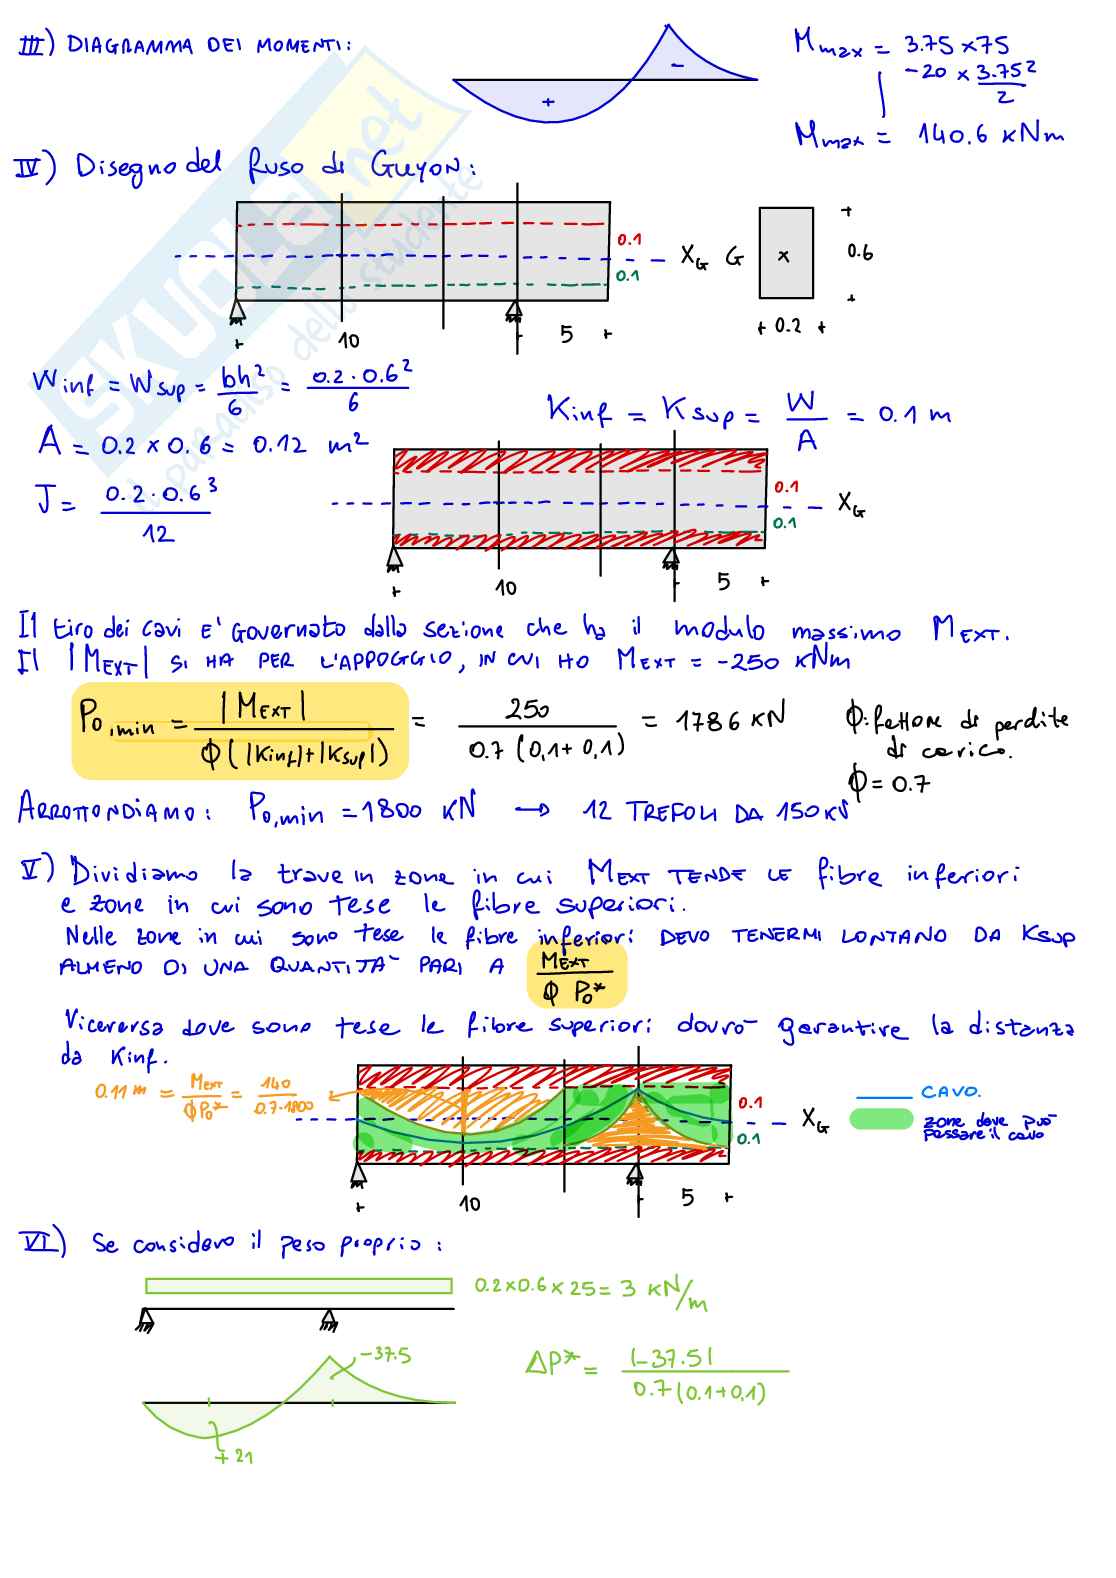 III) DIAGRAMMA DEI MOMENTI:
+
-
Mmax = 3.75 x 75
-20 x 3.75² / 2
Mmax = 140.6 kNm
IV) Disegno del fuso di Guyon:
0.1
0.1
XG
G
x
0.6
0.2
10
5
Winf = Wsup = bh²/6 = 0.2 · 0.6² / 6
A = 0.2 x 0.6 = 0.12 m²
J = 0.2 · 0.6³ / 12
Kinf = Ksup = W/A = 0.1 m
0.1
0.1
XG
10
5
Il tiro dei cavi E' GOVERNATO dalla sezione che ha il modulo massimo MEXT.
Il |MEXT| SI HA PER L'APPOGGIO, IN CUI HO MEXT = -250 kNm
P0,min = |MEXT| / ϕ(|Kinf|+|Ksup|) = 250 / 0.7 (0,1+0,1) = 1786 kN
ϕ: fattore di perdite
di carico.
ϕ = 0.7
ARROTONDIAMO: P0,min = 1800 kN → 12 TREFOLI DA 150 kN
V) Dividiamo la trave in zone in cui MEXT TENDE LE fibre inferiori
e zone in cui sono tese le fibre superiori.
Nelle zone in cui sono tese le fibre inferiori DEVO TENERMI LONTANO DA KSUP
ALMENO DI UNA QUANTITA' PARI A MEXT / ϕ P0*
Viceversa dove sono tese le fibre superiori dovrò garantire la distanza
da Kinf.
0.11 m = MEXT / ϕP0* = 140 / 0.7·1800
0.1
0.1
XG
10
5
CAVO.
zone dove può
passare il cavo
VI) Se considero il peso proprio:
0.2x0.6x25 = 3 kN/m
-37.5
+21
ΔP* = |-37.5| / 0.7 (0.1+0,1)
SKUOLA.net
il paradiso dello studente